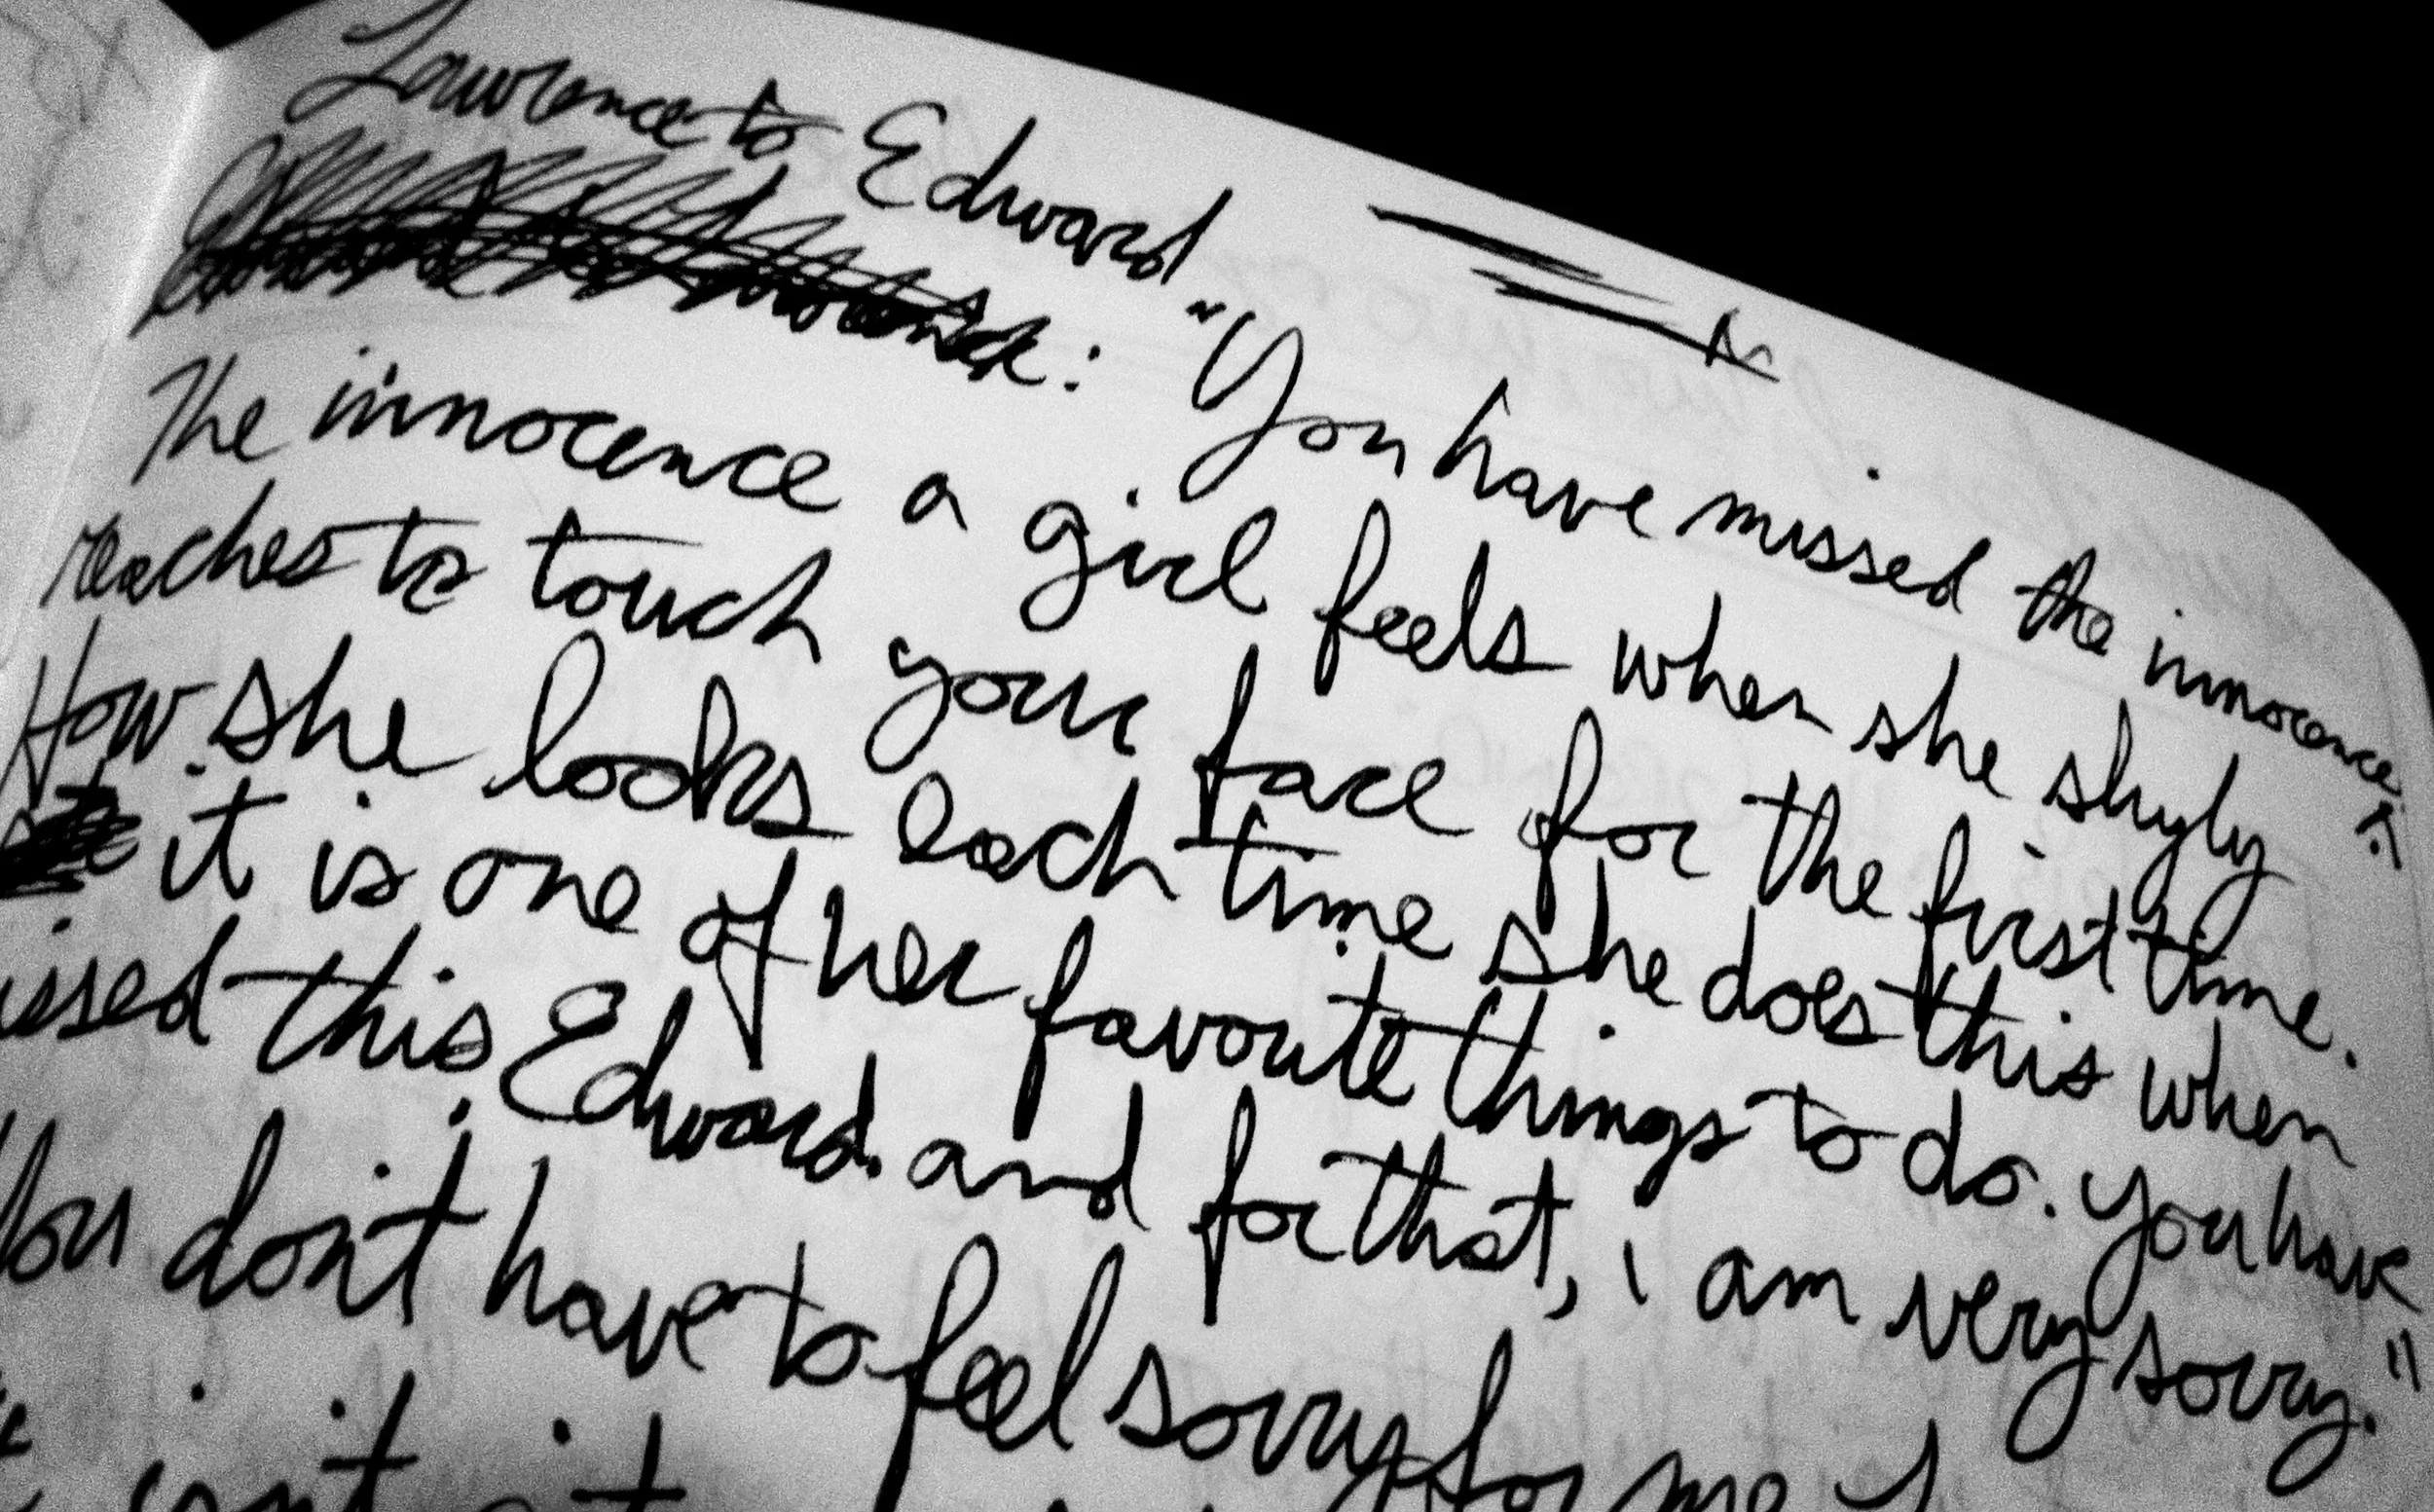 Lawrence to Edward
: "You have missed the innocence.
The innocence a girl feels when she shyly
reaches to touch your face for the first time.
How she looks each time she does this when
it is one of her favorite things to do. You have
issed this Edward. and for that, i am very sorry."
You don't have to feel sorry for me
isn't it